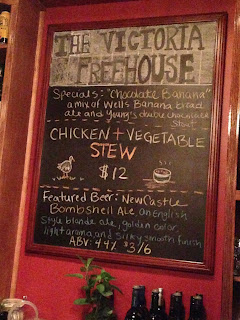 THE VICTORIA
FREEHOUSE
Specials: "Chocolate Banana"
a mix of Wells Banana bread
ale and Young's double chocolate
Stout
CHICKEN + VEGETABLE
STEW
$12
Featured Beer: NewCastle
Bombshell Ale an English
style blonde ale, golden color,
light aroma, and silky smooth finish
ABV: 4.4% $3/6